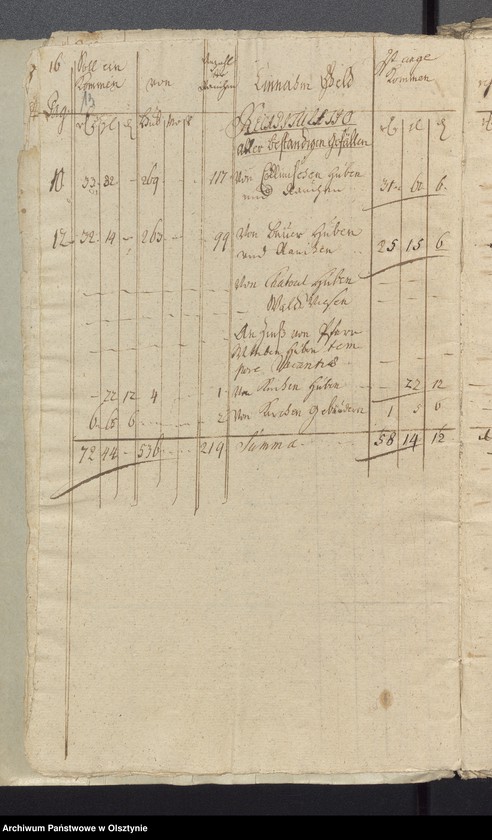 16 Soll ein
Kommen von Anzahl der Rauchen Einnahm Geld Ist einge
Kommen
Pag:
Recapitulatio
aller beständigen Gefällen
10 33 32 - 269 - 117 Von Cöllmischen Huben
und Rauchen 31 60 6
12 32 14 - 263 - 99 Von Bauer Huben
und Rauchen 25 15 6
Von Chatoul Huben
Wald Wiesen
An Zinß von Pfarr
Widdem Huben tem
pore Vacantiæ
- 22 12 4 1 Von Kirchen Huben 22 12
6 65 6 2 Von Kirchen Gebäudern 1 5 6
72 44 - 536 219 Summa 58 14 12
Archiwum Państwowe w Olsztynie